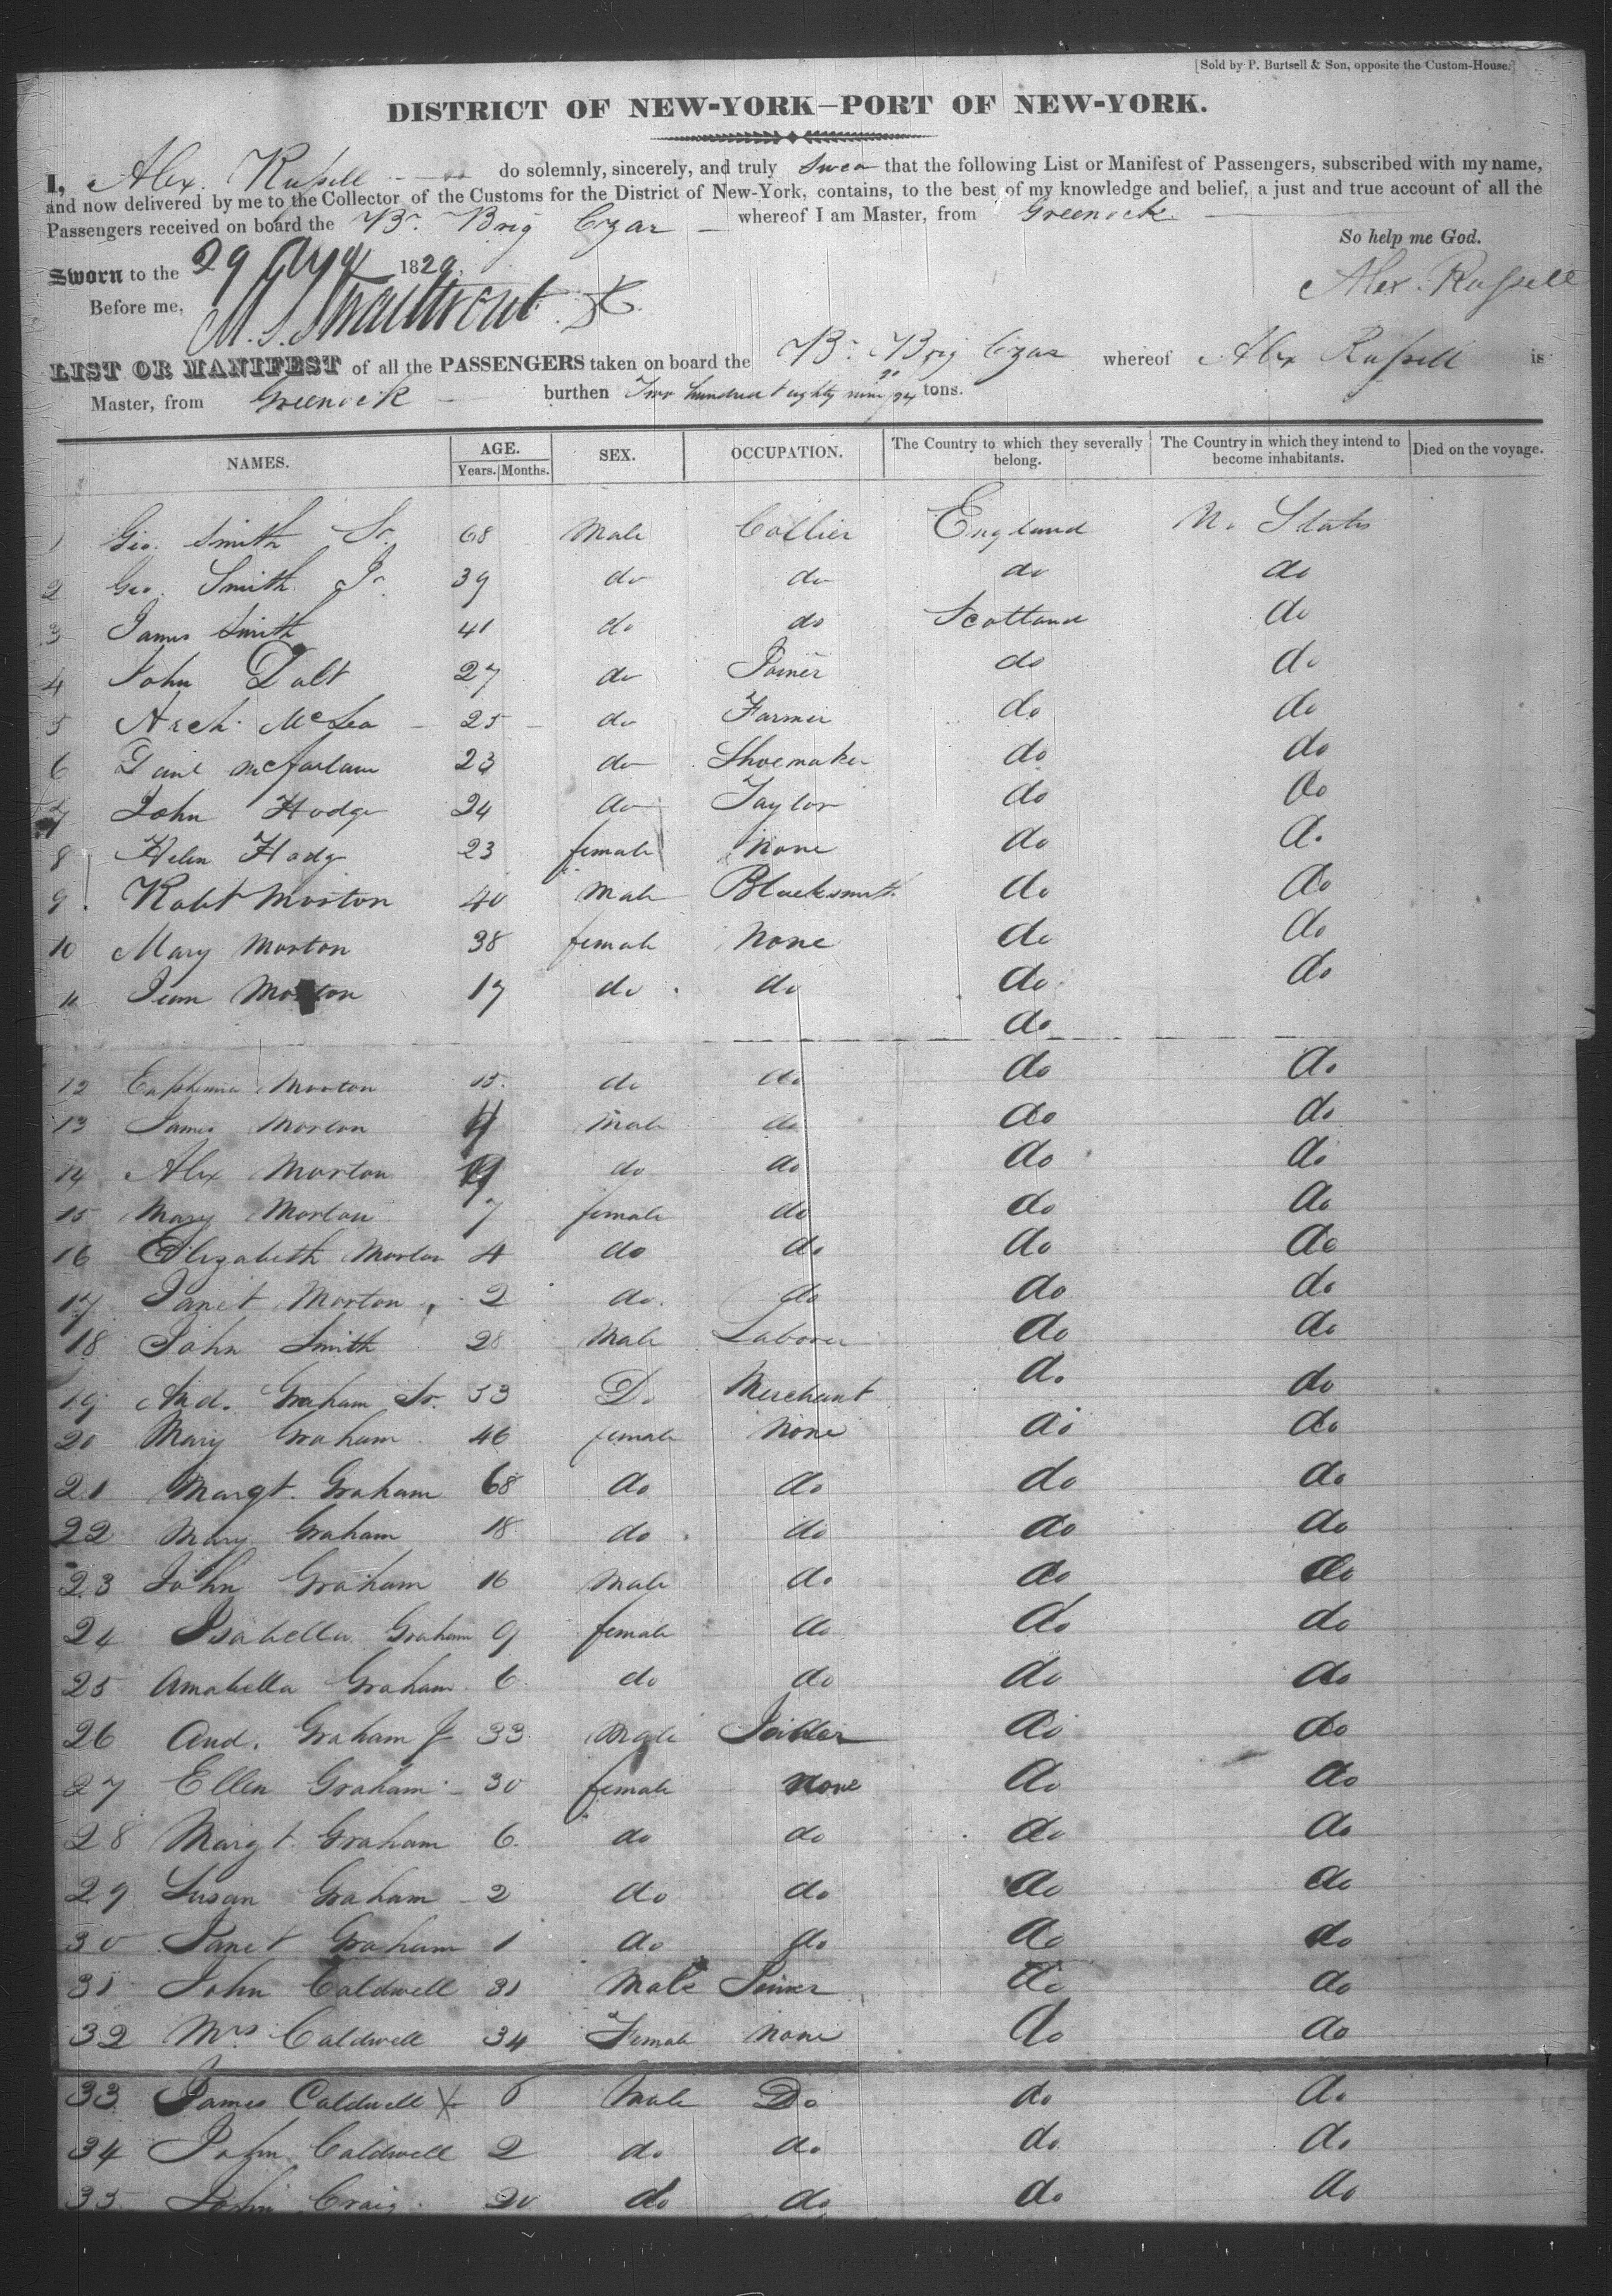 [Sold by P. Burtsell & Son, opposite the Custom-House.]
DISTRICT OF NEW-YORK—PORT OF NEW-YORK.
I, Alex. Russell do solemnly, sincerely, and truly swear that the following List or Manifest of Passengers, subscribed with my name,
and now delivered by me to the Collector of the Customs for the District of New-York, contains, to the best of my knowledge and belief, a just and true account of all the
Passengers received on board the Br. Brig Czar whereof I am Master, from Greenock
So help me God.
Sworn to the 29 Augt 1829.
Alex. Russell
Before me,
LIST OR MANIFEST of all the PASSENGERS taken on board the Br. Brig Czar whereof Alex Russell is
Master, from Greenock burthen Two hundred & eighty nine 20/94 tons.
NAMES. AGE. Years. Months. SEX. OCCUPATION. The Country to which they severally belong. The Country in which they intend to become inhabitants. Died on the voyage.
1 Geo. Smith Sr. 68 Male Collier England U. States
2 Geo. Smith Jr. 39 do do do do
3 James Smith 41 do do Scotland do
4 John Dalt 27 do Joiner do do
5 Arch. McLea 25 do Farmer do do
6 McFarlane 23 do Shoemaker do do
7 John Hodge 24 do Taylor do do
8 Helen Hodge 23 female None do do
9 Robt Morton 40 Male Blacksmith do do
10 Mary Morton 38 female None do do
11 Jean Morton 17 do do do do
do
12 Euphemia Morton 15 do do do do
13 James Morton 11 Male do do do
14 Alex Morton 9 do do do do
15 Mary Morton 7 female do do do
16 Elizabeth Morton 4 do do do do
17 Janet Morton 2 do do do do
18 John Smith 28 Male Laborer do do
19 And. Graham Sr. 53 Do Merchant do do
20 Mary Graham 46 female None do do
21 Margt. Graham 68 do do do do
22 Mary Graham 18 do do do do
23 John Graham 16 Male do do do
24 Isabella Graham 9 female do do do
25 Amabella Graham 6 do do do do
26 And. Graham Jr 33 Male do do
27 Ellen Graham 30 female None do do
28 Margt. Graham 6 do do do do
29 Susan Graham 2 do do do do
30 Janet Graham 1 do do do do
31 John Caldwell 31 Male Joiner do do
32 Mrs Caldwell 34 Female None do do
33 James Caldwell X Male Do do do
34 John Caldwell 2 do do do do
35 John Craig 20 do do do do